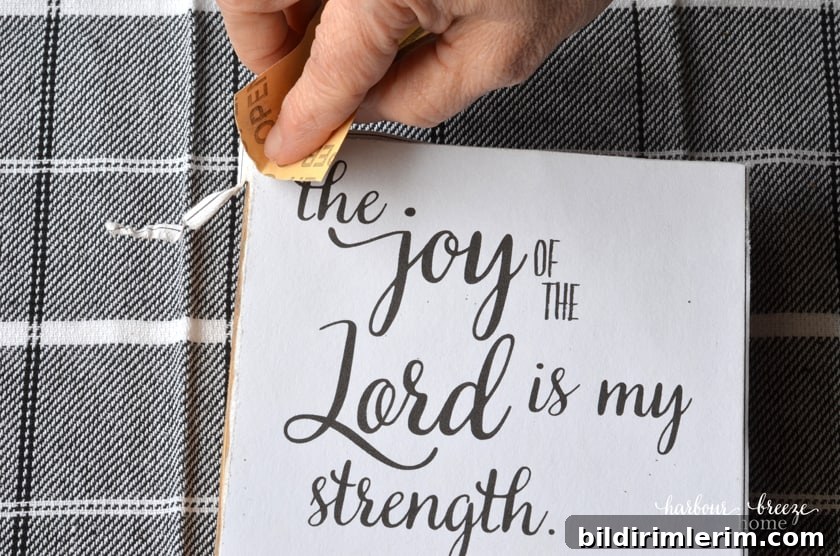 OPEN
the
joy OF
THE
Lord is my
strength.
harbour breeze
home
bildirimlerim.com